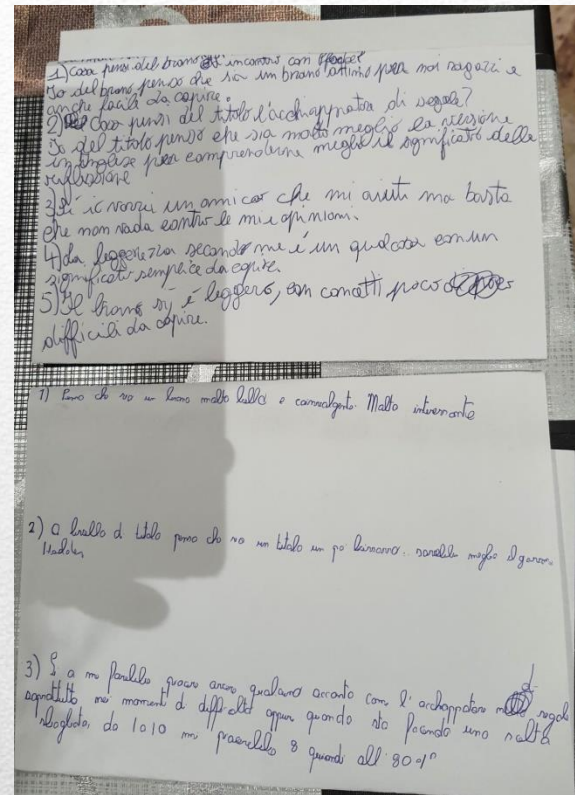 1) Cosa pensi del brano incontro con
Io del brano penso che sia un brano ottimo per noi ragazzi e
anche facile da capire.
2) Cosa pensi del titolo l'acchiappatore di segale?
Io del titolo penso che sia molto meglio la versione
in inglese per comprenderne meglio il significato della
riflessione
3) Sì io vorrei un amico che mi aiuti ma basta
che non vada contro le mie opinioni.
4) La leggerezza secondo me è un qualcosa con un
significato semplice da capire.
5) Il brano sì è leggero, con concetti poco
difficili da capire.
1) Penso che sia un brano molto bello e coinvolgente. Molto interessante
2) A livello di titolo penso che sia un titolo un po' bizzarro.. sarebbe meglio il giovane
Holden
3) Sì a me farebbe piacere avere qualcuno accanto come l'acchiappatore di segale
soprattutto nei momenti di difficoltà oppure quando sto facendo una scelta
sbagliata, da 1 a 10 mi piacerebbe 8 quindi all'80%